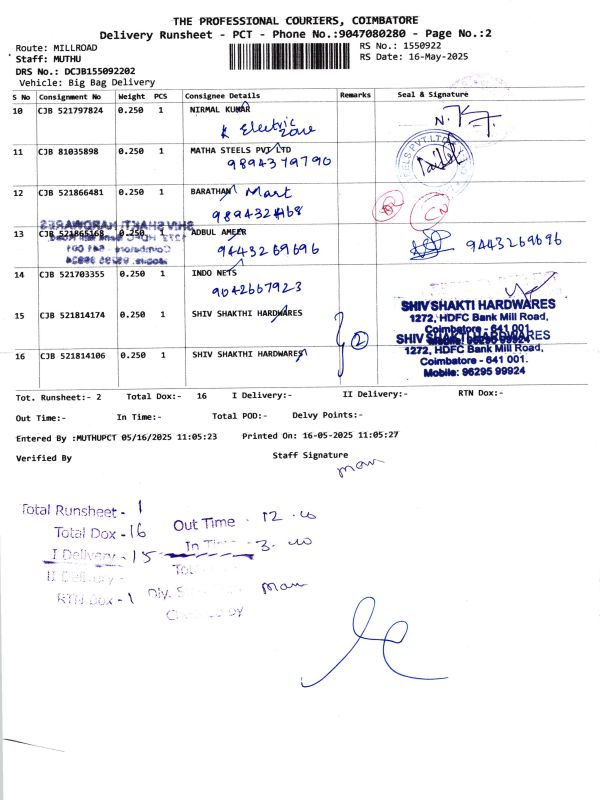 THE PROFESSIONAL COURIERS, COIMBATORE
Delivery Runsheet - PCT - Phone No.:9047080280 - Page No.:2
Route: MILLROAD
RS No.: 1550922
Staff: MUTHU
RS Date: 16-May-2025
DRS No.: DCJB155092202
Vehicle: Big Bag Delivery
S No Consignment No Weight PCS Consignee Details Remarks Seal & Signature
10 CJB 521797824 0.250 1 NIRMAL KUMAR
Electric Zone
11 CJB 81035898 0.250 1 MATHA STEELS PVT LTD
9894379790
12 CJB 521866481 0.250 1 BARATHAN Mart
13 CJB 521865168 0.250 1 ADBUL AMEER
9443269696 9443269696
14 CJB 521703355 0.250 1 INDO NETS
9042667923
15 CJB 521814174 0.250 1 SHIV SHAKTHI HARDWARES
2
16 CJB 521814106 0.250 1 SHIV SHAKTHI HARDWARES
SHIV SHAKTI HARDWARES
1272, HDFC Bank Mill Road,
Coimbatore - 641 001.
SHIV SHAKTI HARDWARES
1272, HDFC Bank Mill Road,
Coimbatore - 641 001.
Mobile: 96295 99924
Tot. Runsheet:- 2 Total Dox:- 16 I Delivery:- II Delivery:- RTN Dox:-
Out Time:- In Time:- Total POD:- Delvy Points:-
Entered By :MUTHUPCT 05/16/2025 11:05:23 Printed On: 16-05-2025 11:05:27
Verified By Staff Signature
Total Runsheet - 1
Total Dox - 16 Out Time - 12.00
I Delivery - 15 In Time - 3.00
II Delivery -
RTN Dox - 1